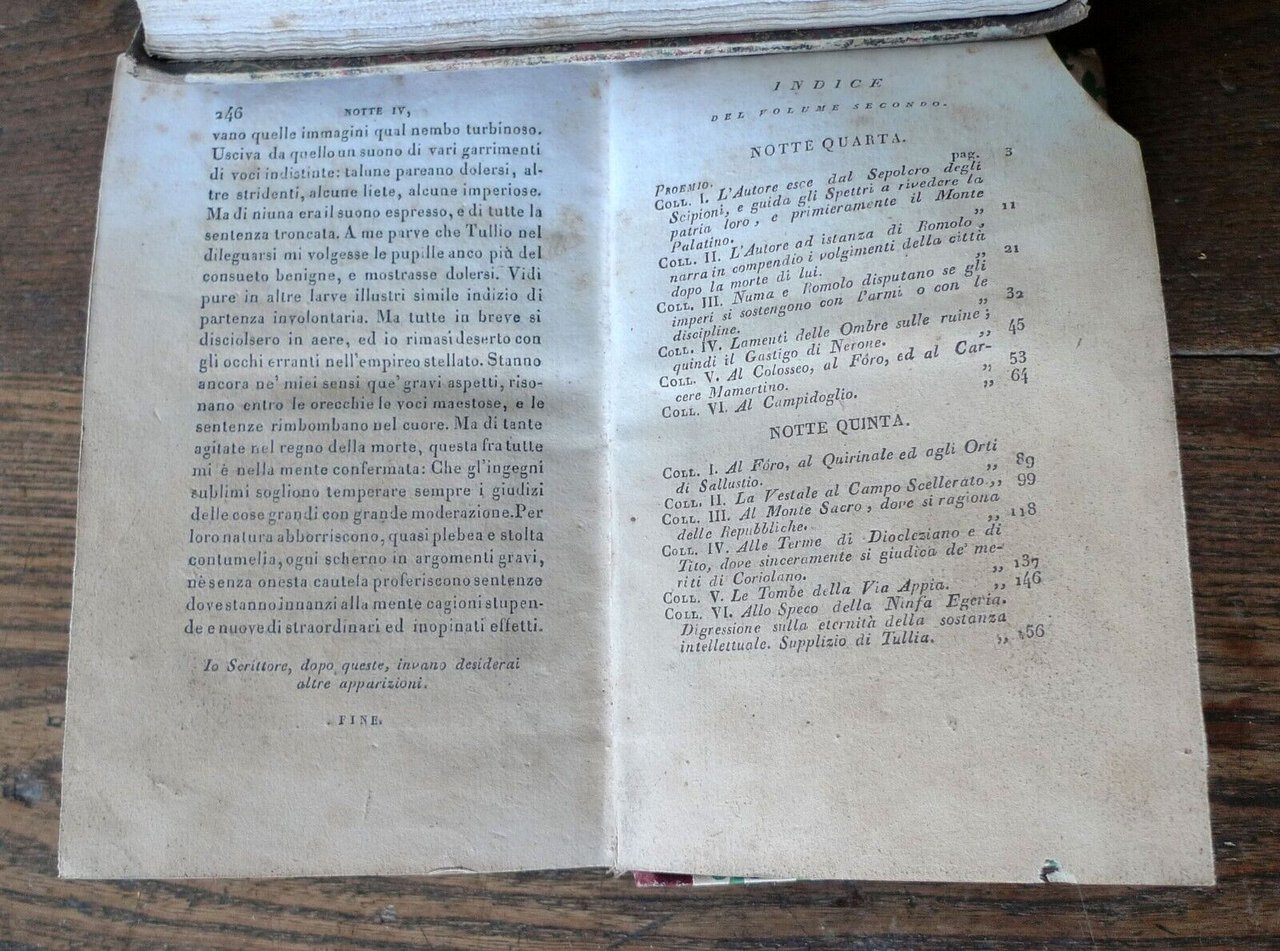 246 NOTTE IV,
vano quelle immagini qual nembo turbinoso.
Usciva da quello un suono di vari garrimenti
di voci indistinte: talune pareano dolersi, al-
tre stridenti, alcune liete, alcune imperiose.
Ma di niuna era il suono espresso, e di tutte la
sentenza troncata. A me parve che Tullio nel
dileguarsi mi volgesse le pupille anco più del
consueto benigne, e mostrasse dolersi. Vidi
pure in altre larve illustri simile indizio di
partenza involontaria. Ma tutte in breve si
disciolsero in aere, ed io rimasi deserto con
gli occhi erranti nell'empireo stellato. Stanno
ancora ne' miei sensi que' gravi aspetti, riso-
nano entro le orecchie le voci maestose, e le
sentenze rimbombano nel cuore. Ma di tante
agitate nel regno della morte, questa fra tutte
mi è nella mente confermata: Che gl'ingegni
sublimi sogliono temperare sempre i giudizi
delle cose grandi con grande moderazione. Per
loro natura abborriscono, quasi plebea e stolta
contumelia, ogni scherno in argomenti gravi,
nè senza onesta cautela proferiscono sentenze
dove stanno innanzi alla mente cagioni stupen-
de e nuove di straordinari ed inopinati effetti.
Io Scrittore, dopo queste, invano desiderai
altre apparizioni.
FINE.
INDICE
DEL VOLUME SECONDO.
NOTTE QUARTA.
PROEMIO. pag. 3
COLL. I. L'Autore esce dal Sepolcro degli
Scipioni, e guida gli Spettri a rivedere la
patria loro, e primieramente il Monte
Palatino. „ 11
COLL. II. L'Autore ad istanza di Romolo,
narra in compendio i volgimenti della città
dopo la morte di lui. „ 21
COLL. III. Numa e Romolo disputano se gli
imperi si sostengono con l'armi o con le
discipline. „ 32
COLL. IV. Lamenti delle Ombre sulle ruine;
quindi il Gastigo di Nerone. „ 45
COLL. V. Al Colosseo, al Fòro, ed al Car-
cere Mamertino. „ 53
COLL. VI. Al Campidoglio. „ 64
NOTTE QUINTA.
COLL. I. Al Fòro, al Quirinale ed agli Orti
di Sallustio. „ 89
COLL. II. La Vestale al Campo Scellerato. „ 99
COLL. III. Al Monte Sacro, dove si ragiona
delle Repubbliche. „ 118
COLL. IV. Alle Terme di Diocleziano e di
Tito, dove sinceramente si giudica de' me-
riti di Coriolano. „ 137
COLL. V. Le Tombe della Via Appia. „ 146
COLL. VI. Allo Speco della Ninfa Egeria.
Digressione sulla eternità della sostanza
intellettuale. Supplizio di Tullia. „ 156